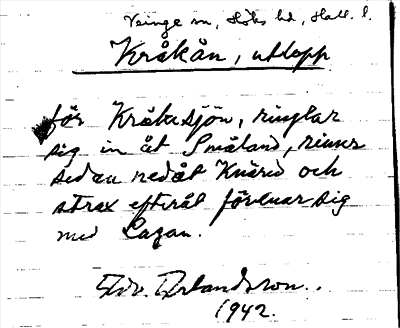 Veinge sn, Höks hd, Hall. l.
Kråkån, utlopp
för Kråkesjön, ringlar
sig in åt Småland, rinner
sedan nedåt Knäred och
strax efteråt förenar sig
med Lagan.
Edv. Erlandsson.
1942.